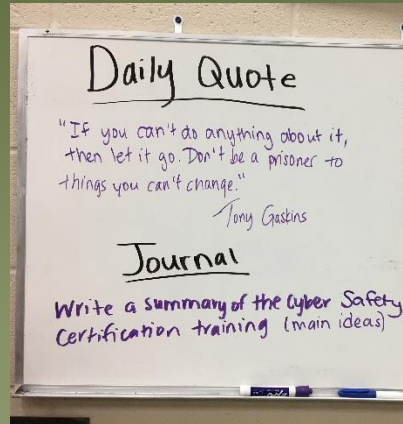 Daily Quote
"If you can't do anything about it,
then let it go. Don't be a prisoner to
things you can't change."
Tony Gaskins
Journal
Write a summary of the Cyber Safety
Certification training (main ideas)